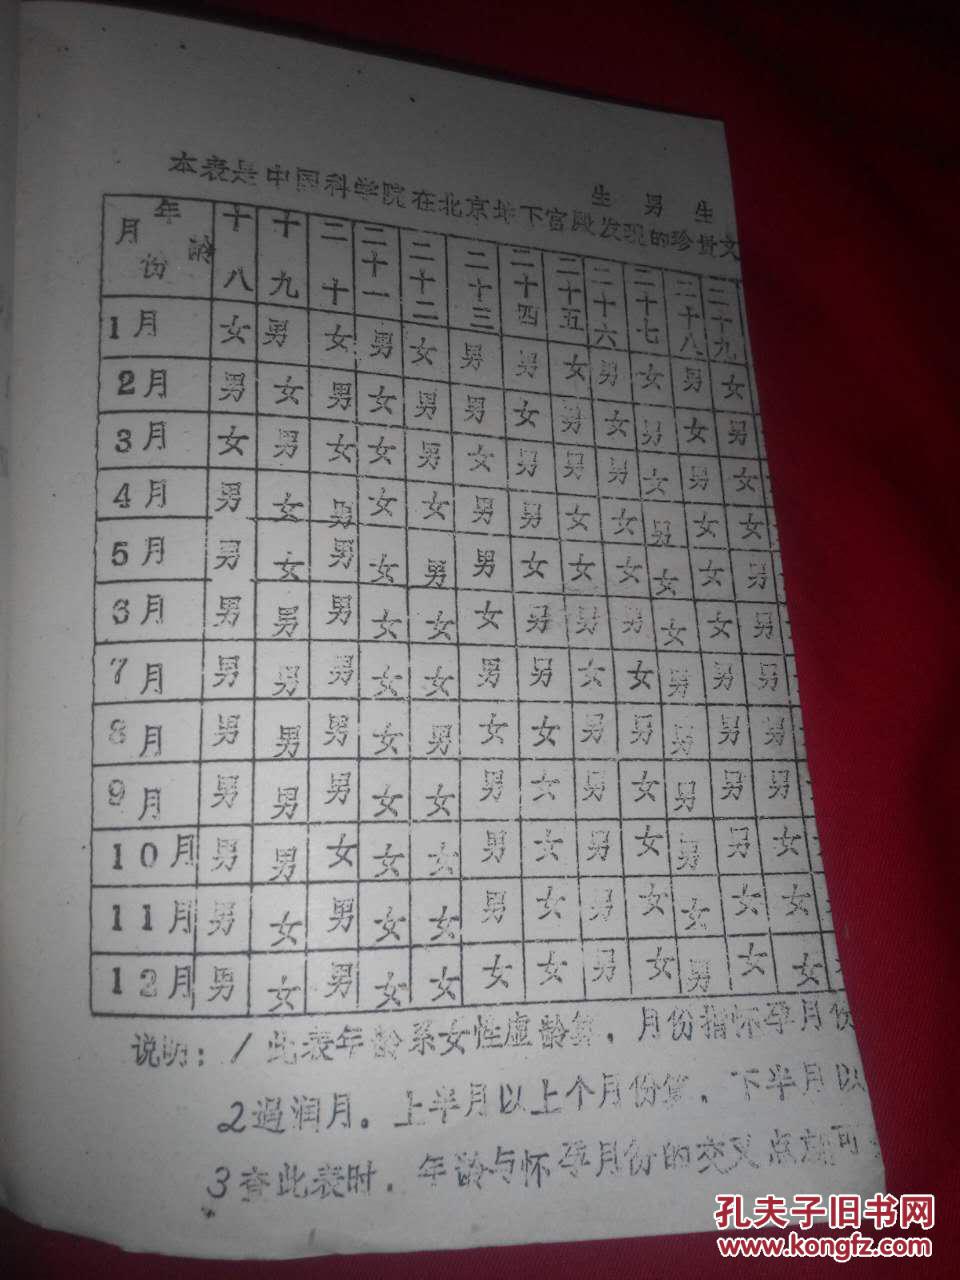 生 男 生
本表是中国科学院在北京地下宫殿发现的珍贵文
年龄 月份 十八 十九 二十 二十一 二十二 二十三 二十四 二十五 二十六 二十七 二十八 二十九
1月 女 男 女 男 女 男 男 女 男 女 男 女
2月 男 女 男 女 男 男 女 男 女 男 女 男
3月 女 男 女 女 男 女 男 男 男 女 男 女
4月 男 女 男 女 女 男 男 女 女 男 女 女
5月 男 女 男 女 男 男 女 女 女 女 女 男
6月 男 男 男 女 女 女 男 男 男 女 女 男
7月 男 男 男 女 女 男 男 女 女 男 男 男
8月 男 男 男 女 男 女 女 男 男 男 男 男
9月 男 男 男 女 女 男 女 男 女 男 男 男
10月 男 男 女 女 女 男 女 男 女 男 男 女
11月 男 女 男 女 女 男 女 男 女 女 女 女
12月 男 女 男 女 女 女 女 男 女 男 女 女
说明：1 此表年龄系女性虚龄算，月份指怀孕月份
2过润月。上半月以上个月份算，下半月以
3查此表时，年龄与怀孕月份的交叉点就可
孔夫子旧书网
www.kongfz.com